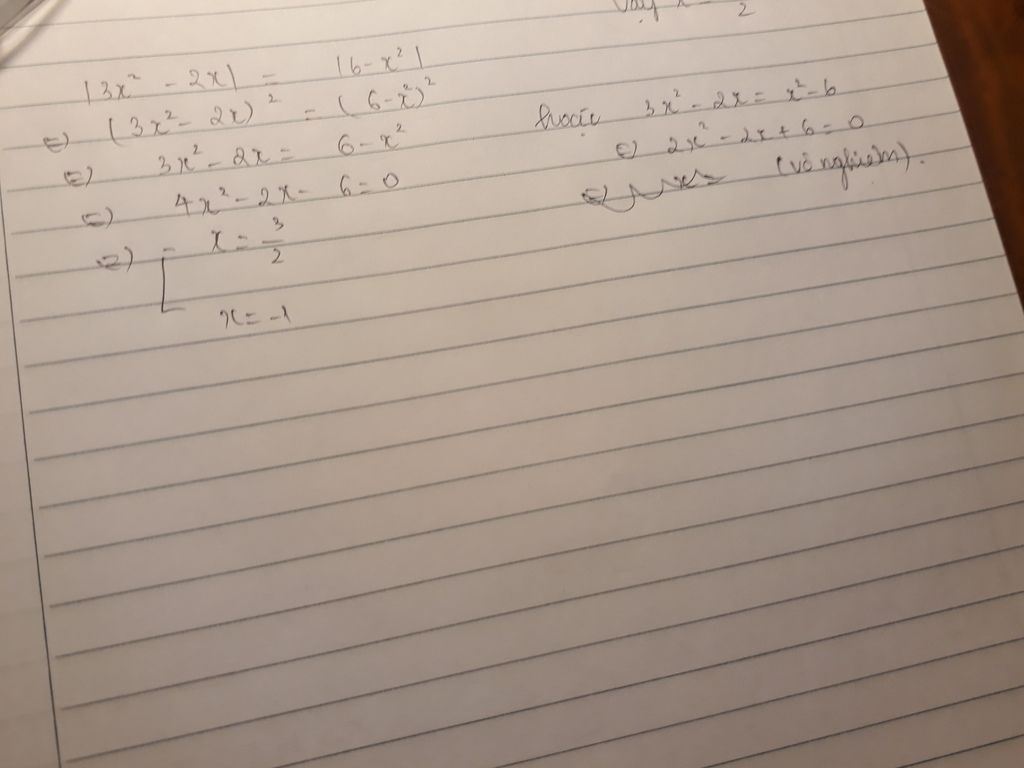 Vậy x = /2
|3x² - 2x| = |6 - x²|
⇔ (3x² - 2x)² = (6 - x²)²
⇔ 3x² - 2x = 6 - x²
⇔ 4x² - 2x - 6 = 0
⇔ [ x = 3/2
x = -1
hoặc 3x² - 2x = x² - 6
⇔ 2x² - 2x + 6 = 0
(vô nghiệm).